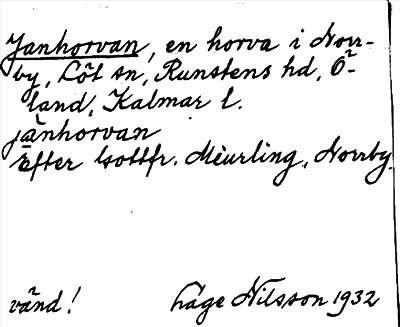 Janhorvan, en horva i Norr-
by, Löt sn, Runstens hd, Ö-
land, Kalmar l.
jànhorvan
Efter Gottfr. Meurling, Norrby.
vänd! Åge Nilsson 1932